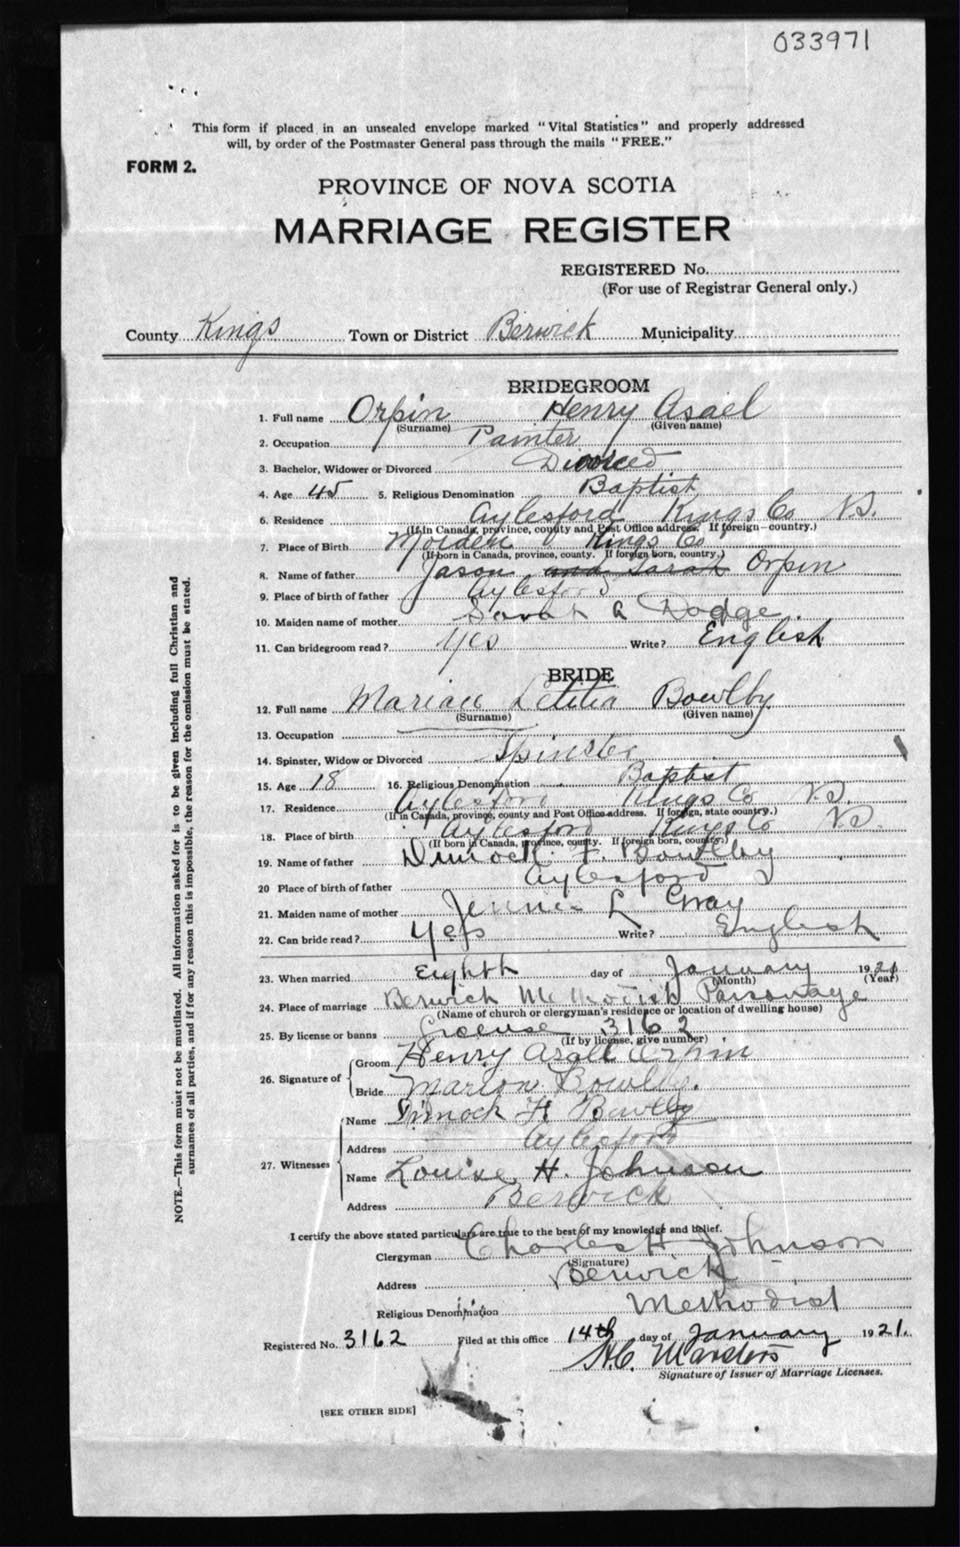 033971
This form if placed in an unsealed envelope marked "Vital Statistics" and properly addressed
will, by order of the Postmaster General pass through the mails "FREE."
FORM 2.
PROVINCE OF NOVA SCOTIA
MARRIAGE REGISTER
REGISTERED No.
(For use of Registrar General only.)
County Kings Town or District Berwick Municipality
BRIDEGROOM
1. Full name Orpin Henry Asael
(Surname) (Given name)
2. Occupation Painter
3. Bachelor, Widower or Divorced Divorced
4. Age 45 5. Religious Denomination Baptist
6. Residence Aylesford Kings Co N.S.
(If in Canada, province, county and Post Office address. If foreign—country.)
7. Place of Birth Morden Kings Co
(If born in Canada, province, county. If foreign born, country.)
8. Name of father Jason and Sarah Orpin
9. Place of birth of father Aylesford
10. Maiden name of mother Sarah A Dodge
11. Can bridegroom read? Yes Write? English
BRIDE
12. Full name Marian Letitia Bowlby
(Surname) (Given name)
13. Occupation
14. Spinster, Widow or Divorced Spinster
15. Age 18 16. Religious Denomination Baptist
17. Residence Aylesford Kings Co N.S.
(If in Canada, province, county and Post Office address. If foreign, state country.)
18. Place of birth Aylesford Kings Co N.S.
(If born in Canada, province, county. If foreign born, country.)
19. Name of father Dimock F. Bowlby
20 Place of birth of father Aylesford
21. Maiden name of mother Jennie L Gray
22. Can bride read? Yes Write? English
23. When married Eighth day of January 1921
(Month) (Year)
24. Place of marriage Berwick Methodist Parsonage
(Name of church or clergyman's residence or location of dwelling house)
25. By license or banns License 3162
(If by license, give number)
26. Signature of
Groom Henry Asael Orpin
Bride Marion Bowlby.
27. Witnesses
Name Dimock H Bowlby
Address Aylesford
Name Louise H. Johnson
Address Berwick
I certify the above stated particulars are true to the best of my knowledge and belief.
Clergyman Charles H Johnson
(Signature)
Address Berwick
Religious Denomination Methodist
Registered No. 3162 Filed at this office 14th day of January 1921.
Signature of Issuer of Marriage Licenses.
[SEE OTHER SIDE]
NOTE.—This form must not be mutilated. All information asked for is to be given including full Christian and
surnames of all parties, and if for any reason this is impossible, the reason for the omission must be stated.